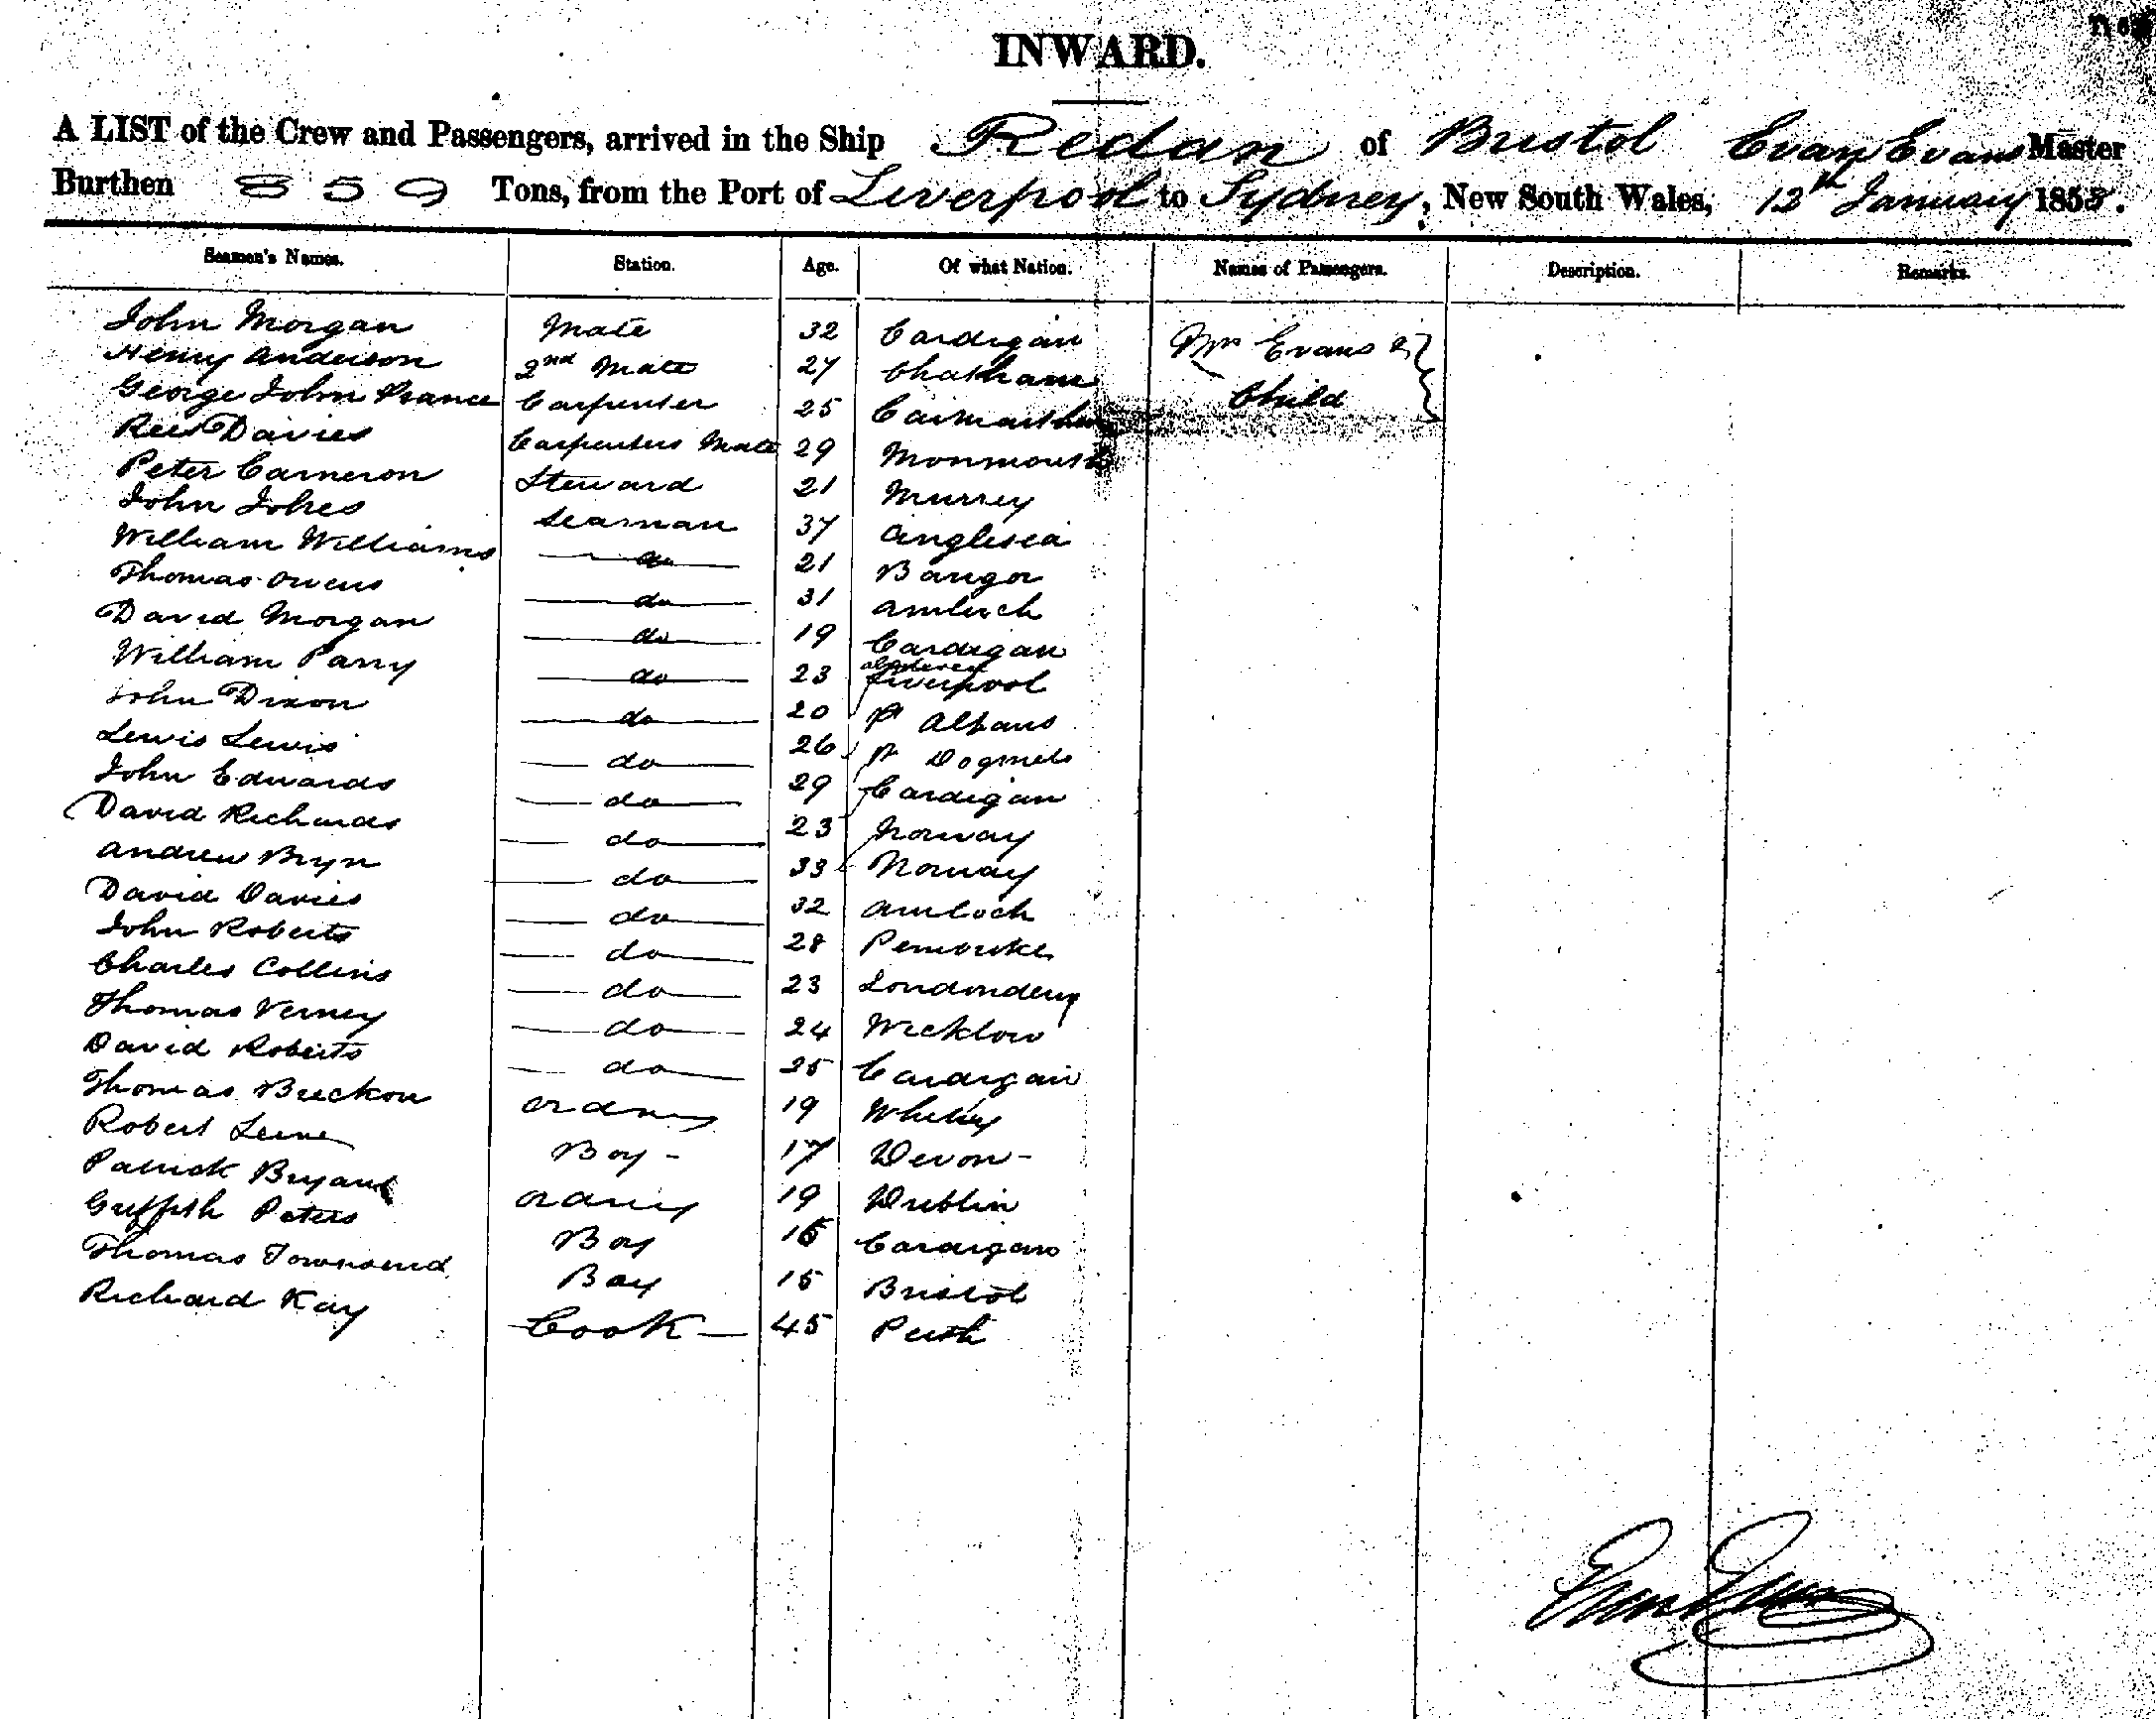 INWARD.
A LIST of the Crew and Passengers, arrived in the Ship Redan of Bristol Evan Evans Master
Burthen 859 Tons, from the Port of Liverpool to Sydney, New South Wales, 12th January 1858.
Seamen's Names. Station. Age. Of what Nation. Names of Passengers. Description. Remarks.
John Morgan Mate 32 Cardigan Mrs Evans &
Henry Anderson 2nd Mate 27 Chatham Child
George John Prance Carpenter 25 Carmarthen
Rees Davies Carpenters Mate 29 Monmouth
Peter Cameron Steward 21 Murrey
John Jones Seaman 37 Anglesea
William Williams do 21 Bangor
Thomas Owens do 31 Amlwch
David Morgan do 19 Cardigan
William Parry do 23 Liverpool
John Dixon do 20 St Albans
Lewis Lewis do 26 St Dogmels
John Edwards do 29 Cardigan
David Richards do 23 Norway
Andrew Bryn do 33 Norway
David Davies do 32 Amloch
John Roberts do 28 Pembroke
Charles Collins do 23 Londonderry
Thomas Verney do 24 Wicklow
David Roberts do 25 Cardigan
Thomas Breckon Ordny 19 Whitby
Robert Boy - 17 Devon -
Patrick Bryant Ordny 19 Dublin
Griffith Peters Boy 16 Cardigan
Thomas Townsend Boy 15 Bristol
Richard Kay Cook 45 Perth
Evan Evans